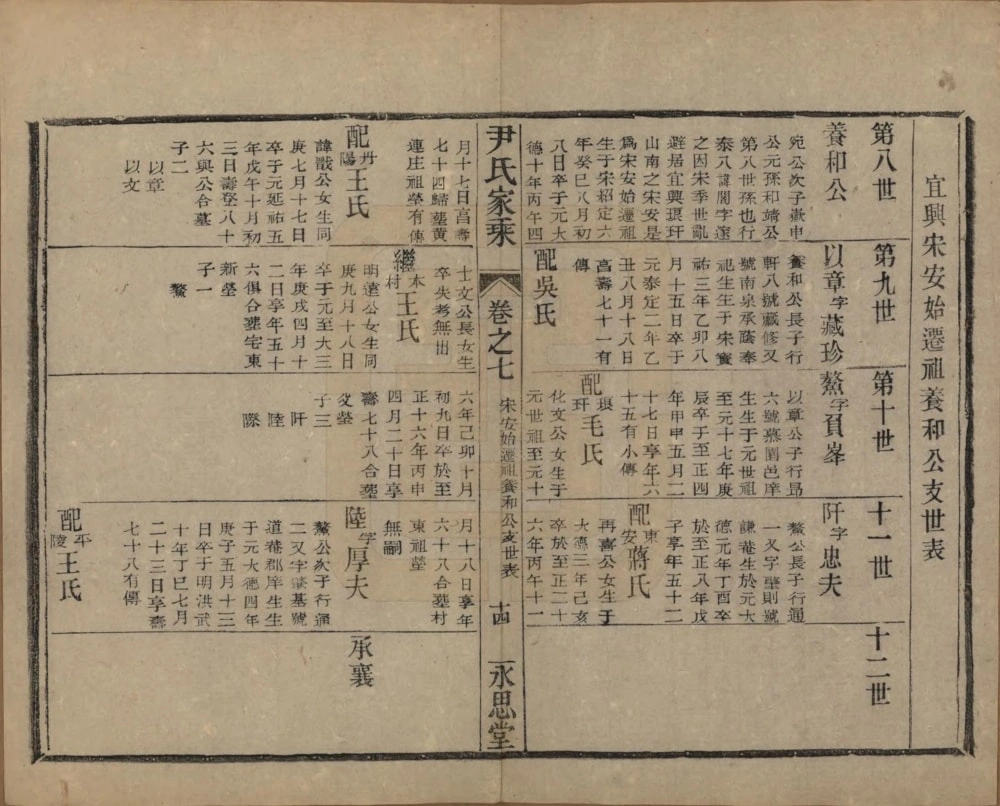 宜興宋安始遷祖養和公支世表
第八世
第九世
第十世
十一世
十二世
養和公
宛公次子嶽申
公元孫和靖公
第八世孫也行
泰八諱閣字遼
之因宋季世亂
避居宜興琅玕
山南之宋安是
爲宋安始遷祖
生于宋紹定六
年癸巳八月初
八日卒于元大
德十年丙午四
月十七日高壽
七十四歸塟黄
連庄祖塋有傳
配丹陽王氏
諱戩公女生同
庚七月十七日
卒于元延祐五
年戊午十月初
三日壽登八十
六與公合墓
子二
以章
以文
以章字藏珍
養和公長子行
軒八號藏修又
號南泉承蔭奉
祀生生于宋寳
祐三年乙卯八
月十五日卒于
元泰定二年乙
丑八月十八日
高壽七十一有
傳
配吳氏
士文公長女生
卒失考無出
繼本村王氏
明遠公女生同
庚九月十八日
卒于元至大三
年庚戌四月十
二日享年五十
六俱合塟宅東
新塋
子一
鰲
鰲字負峯
以章公子行昂
六號慕園邑庠
生生于元世祖
至元十七年庚
辰卒于至正四
年甲申五月二
十七日享年六
十五有小傳
配琅玕毛氏
化文公女生于
元世祖至元十
六年己卯十月
初九日卒於至
正十六年丙申
四月二十日享
壽七十八合塟
父塋
子三
阡
陸
際
阡字忠夫
鰲公長子行通
一又字肇則號
謙菴生於元大
德元年丁酉卒
於至正八年戊
子享年五十二
配東安蔣氏
再喜公女生于
大德三年己亥
卒於至正二十
六年丙午十一
月十八日享年
六十八合塟村
東祖塋
無嗣
陸字厚夫
鰲公次子行通
二又字肇基號
道菴郡庠生生
于元大德四年
庚子五月十三
日卒于明洪武
十年丁巳七月
二十三日享壽
七十八有傳
配平陵王氏
承襄
尹氏家乘
卷之七
宋安始遷祖養和公支世表
十四
永思堂